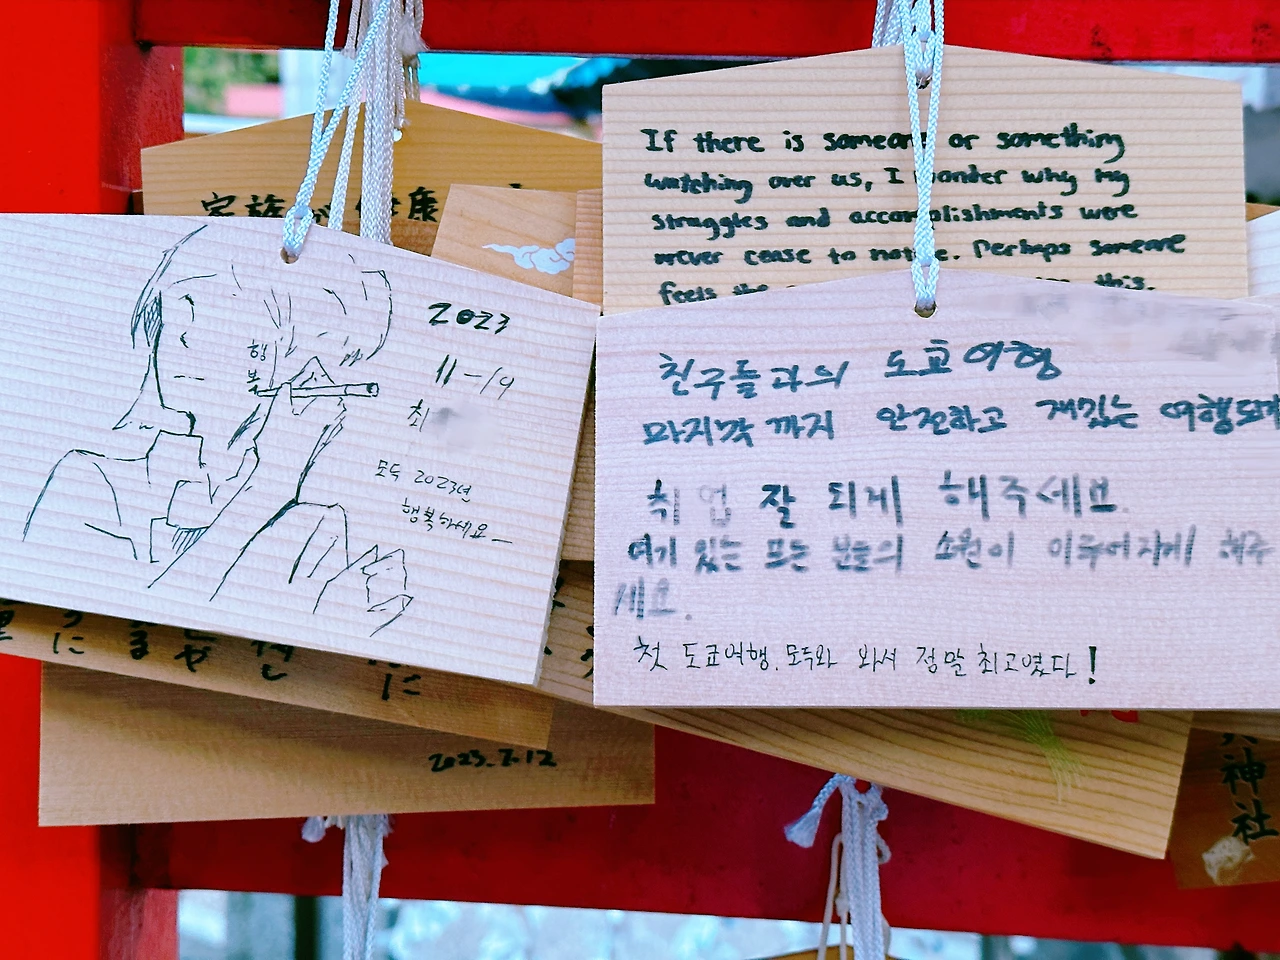 家族が健康
If there is someone or something
watching over us, I wonder why my
struggles and accomplishments were
never cease to notice. Perhaps someone
feels the this.
2023
11-19
최
행
복
모두 2023년
행복하세요
친구들과의 도쿄여행
마지막까지 안전하고 재밌는 여행되게
취업 잘 되게 해주세요.
여기 있는 모든 분들의 소원이 이루어지게 해주
세요.
첫 도쿄여행. 모두와 와서 정말 최고였다!
2023.7.12
神社